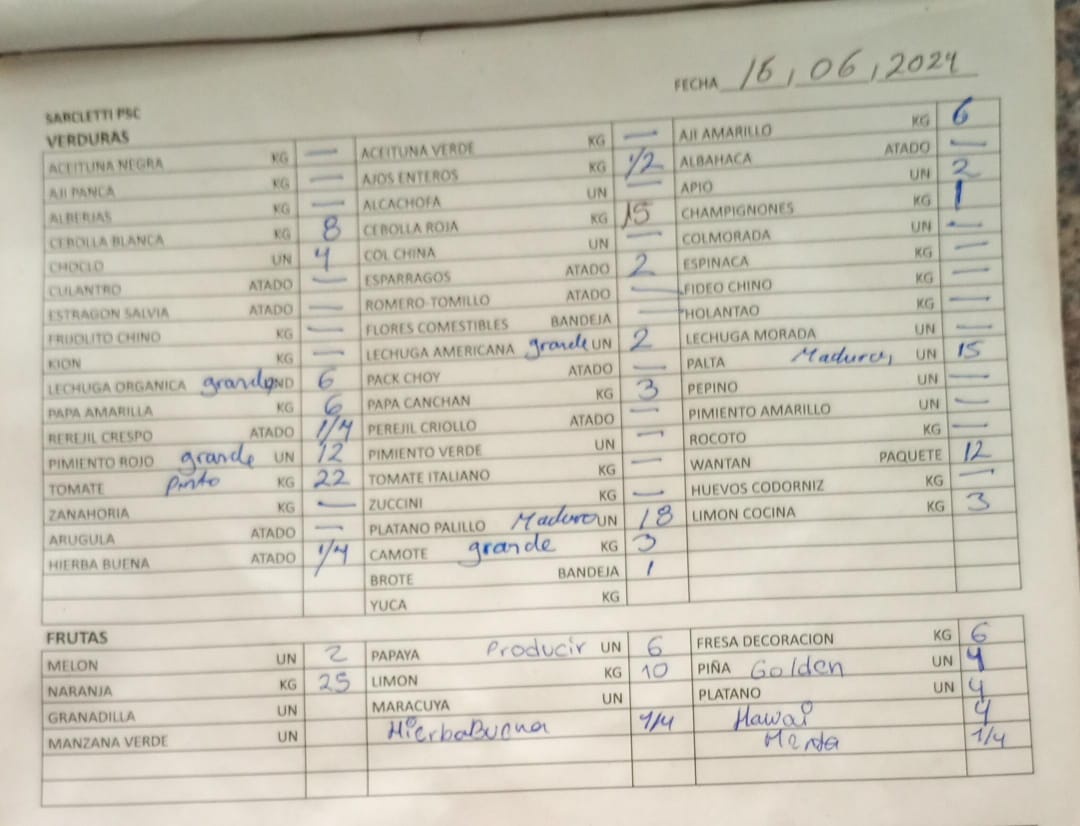 FECHA 16, 06, 2024
SARCLETTI PSC
VERDURAS
ACEITUNA NEGRA KG — ACEITUNA VERDE KG — AJI AMARILLO KG 6
AJI PANCA KG — AJOS ENTEROS KG 1/2 ALBAHACA ATADO —
ALBERJAS KG — ALCACHOFA UN — APIO UN 2
CEBOLLA BLANCA KG 8 CEBOLLA ROJA KG 15 CHAMPIGNONES KG 1
CHOCLO UN 4 COL CHINA UN — COLMORADA UN —
CULANTRO ATADO — ESPARRAGOS ATADO 2 ESPINACA KG —
ESTRAGON SALVIA ATADO — ROMERO-TOMILLO ATADO — FIDEO CHINO KG —
FRIJOLITO CHINO KG — FLORES COMESTIBLES BANDEJA — HOLANTAO KG —
KION KG — LECHUGA AMERICANA grande UN 2 LECHUGA MORADA UN —
LECHUGA ORGANICA grande UND 6 PACK CHOY ATADO — PALTA Madura, UN 15
PAPA AMARILLA KG 6 PAPA CANCHAN KG 3 PEPINO UN —
REREJIL CRESPO ATADO 1/4 PEREJIL CRIOLLO ATADO — PIMIENTO AMARILLO UN —
PIMIENTO ROJO grande UN 12 PIMIENTO VERDE UN — ROCOTO KG —
TOMATE Pinto KG 22 TOMATE ITALIANO KG — WANTAN PAQUETE 12
ZANAHORIA KG — ZUCCINI KG — HUEVOS CODORNIZ KG —
ARUGULA ATADO — PLATANO PALILLO Maduro UN 18 LIMON COCINA KG 3
HIERBA BUENA ATADO 1/4 CAMOTE grande KG 3
BROTE BANDEJA 1
YUCA KG
FRUTAS
MELON UN 2 PAPAYA Producir UN 6 FRESA DECORACION KG 6
NARANJA KG 25 LIMON KG 10 PIÑA Golden UN 4
GRANADILLA UN MARACUYA UN PLATANO UN 4
MANZANA VERDE UN HierbaBuena 1/4 Hawai 4
Menta 1/4